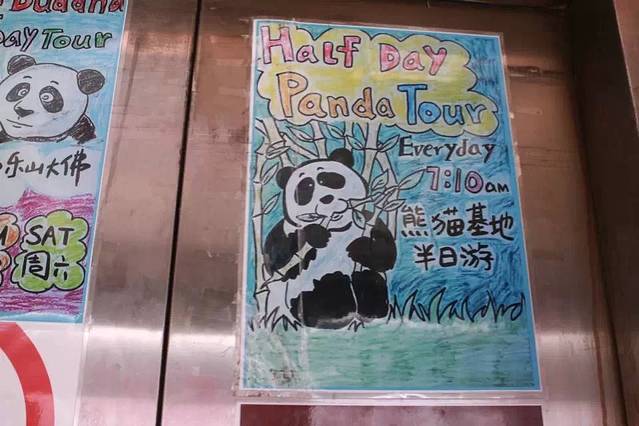 Buddha
Day Tour
乐山大佛
SAT
周六
Half Day
Panda Tour
Everyday
7:10am
熊猫基地
半日游